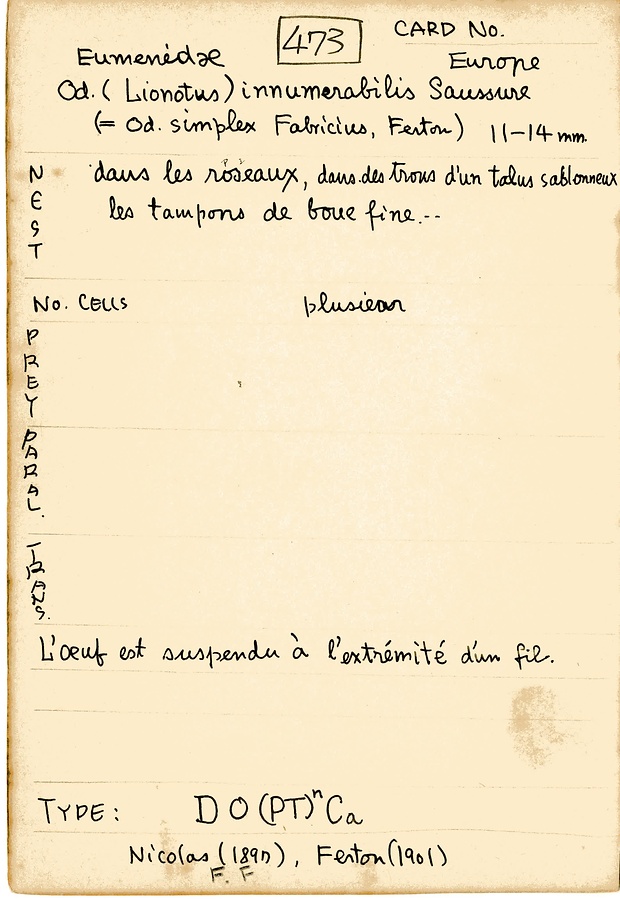 473 CARD No.
Eumenédæ Europe
Od. (Lionotus) innumerabilis Saussure
(= Od. simplex Fabricius, Ferton) 11-14 mm.
NEST dans les roseaux, dans des trous d'un talus sablonneux
les tampons de boue fine...
No. CELLS plusieur
PREY
PARAL.
TRANS.
L'œuf est suspendu à l'extrémité d'un fil.
TYPE: D O (PT)ⁿ Ca
Nicolas (189n), Ferton (1901)
F. F